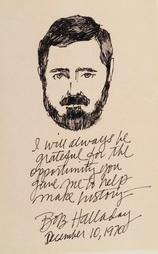 I will always be
grateful for the
opportunity you
gave me to help
make history
Bob Halladay
December 10, 1970